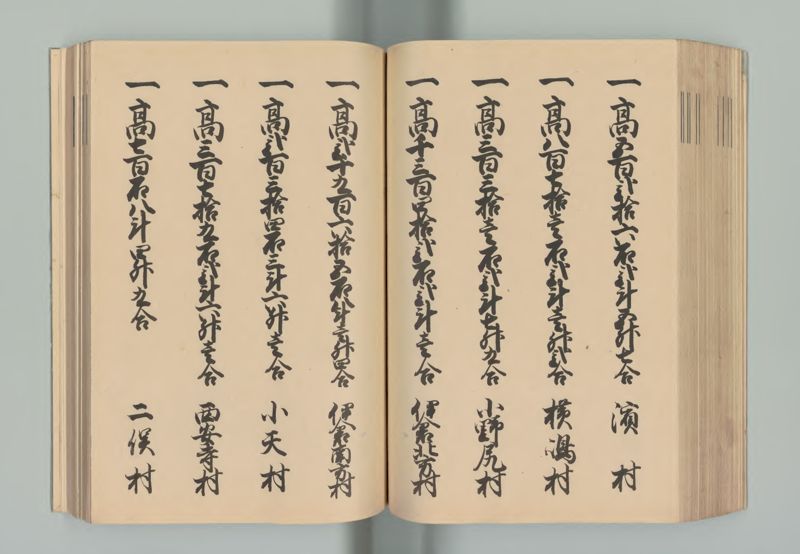 一高五百弐拾六石弐斗五升七合 濱村
一高八百七拾壱石弐斗壱升弐合 横嶋村
一高三百三拾壱石弐斗七升九合 小野尻村
一高千三百四拾弐石弐斗壱合 伊倉北方村
一高弐千九百六拾五石八斗三升四合 伊倉南方村
一高弐百三拾四石三斗六升壱合 小天村
一高三百七拾九石弐斗六升壱合 西安寺村
一高七百石八斗四升九合 二俣村